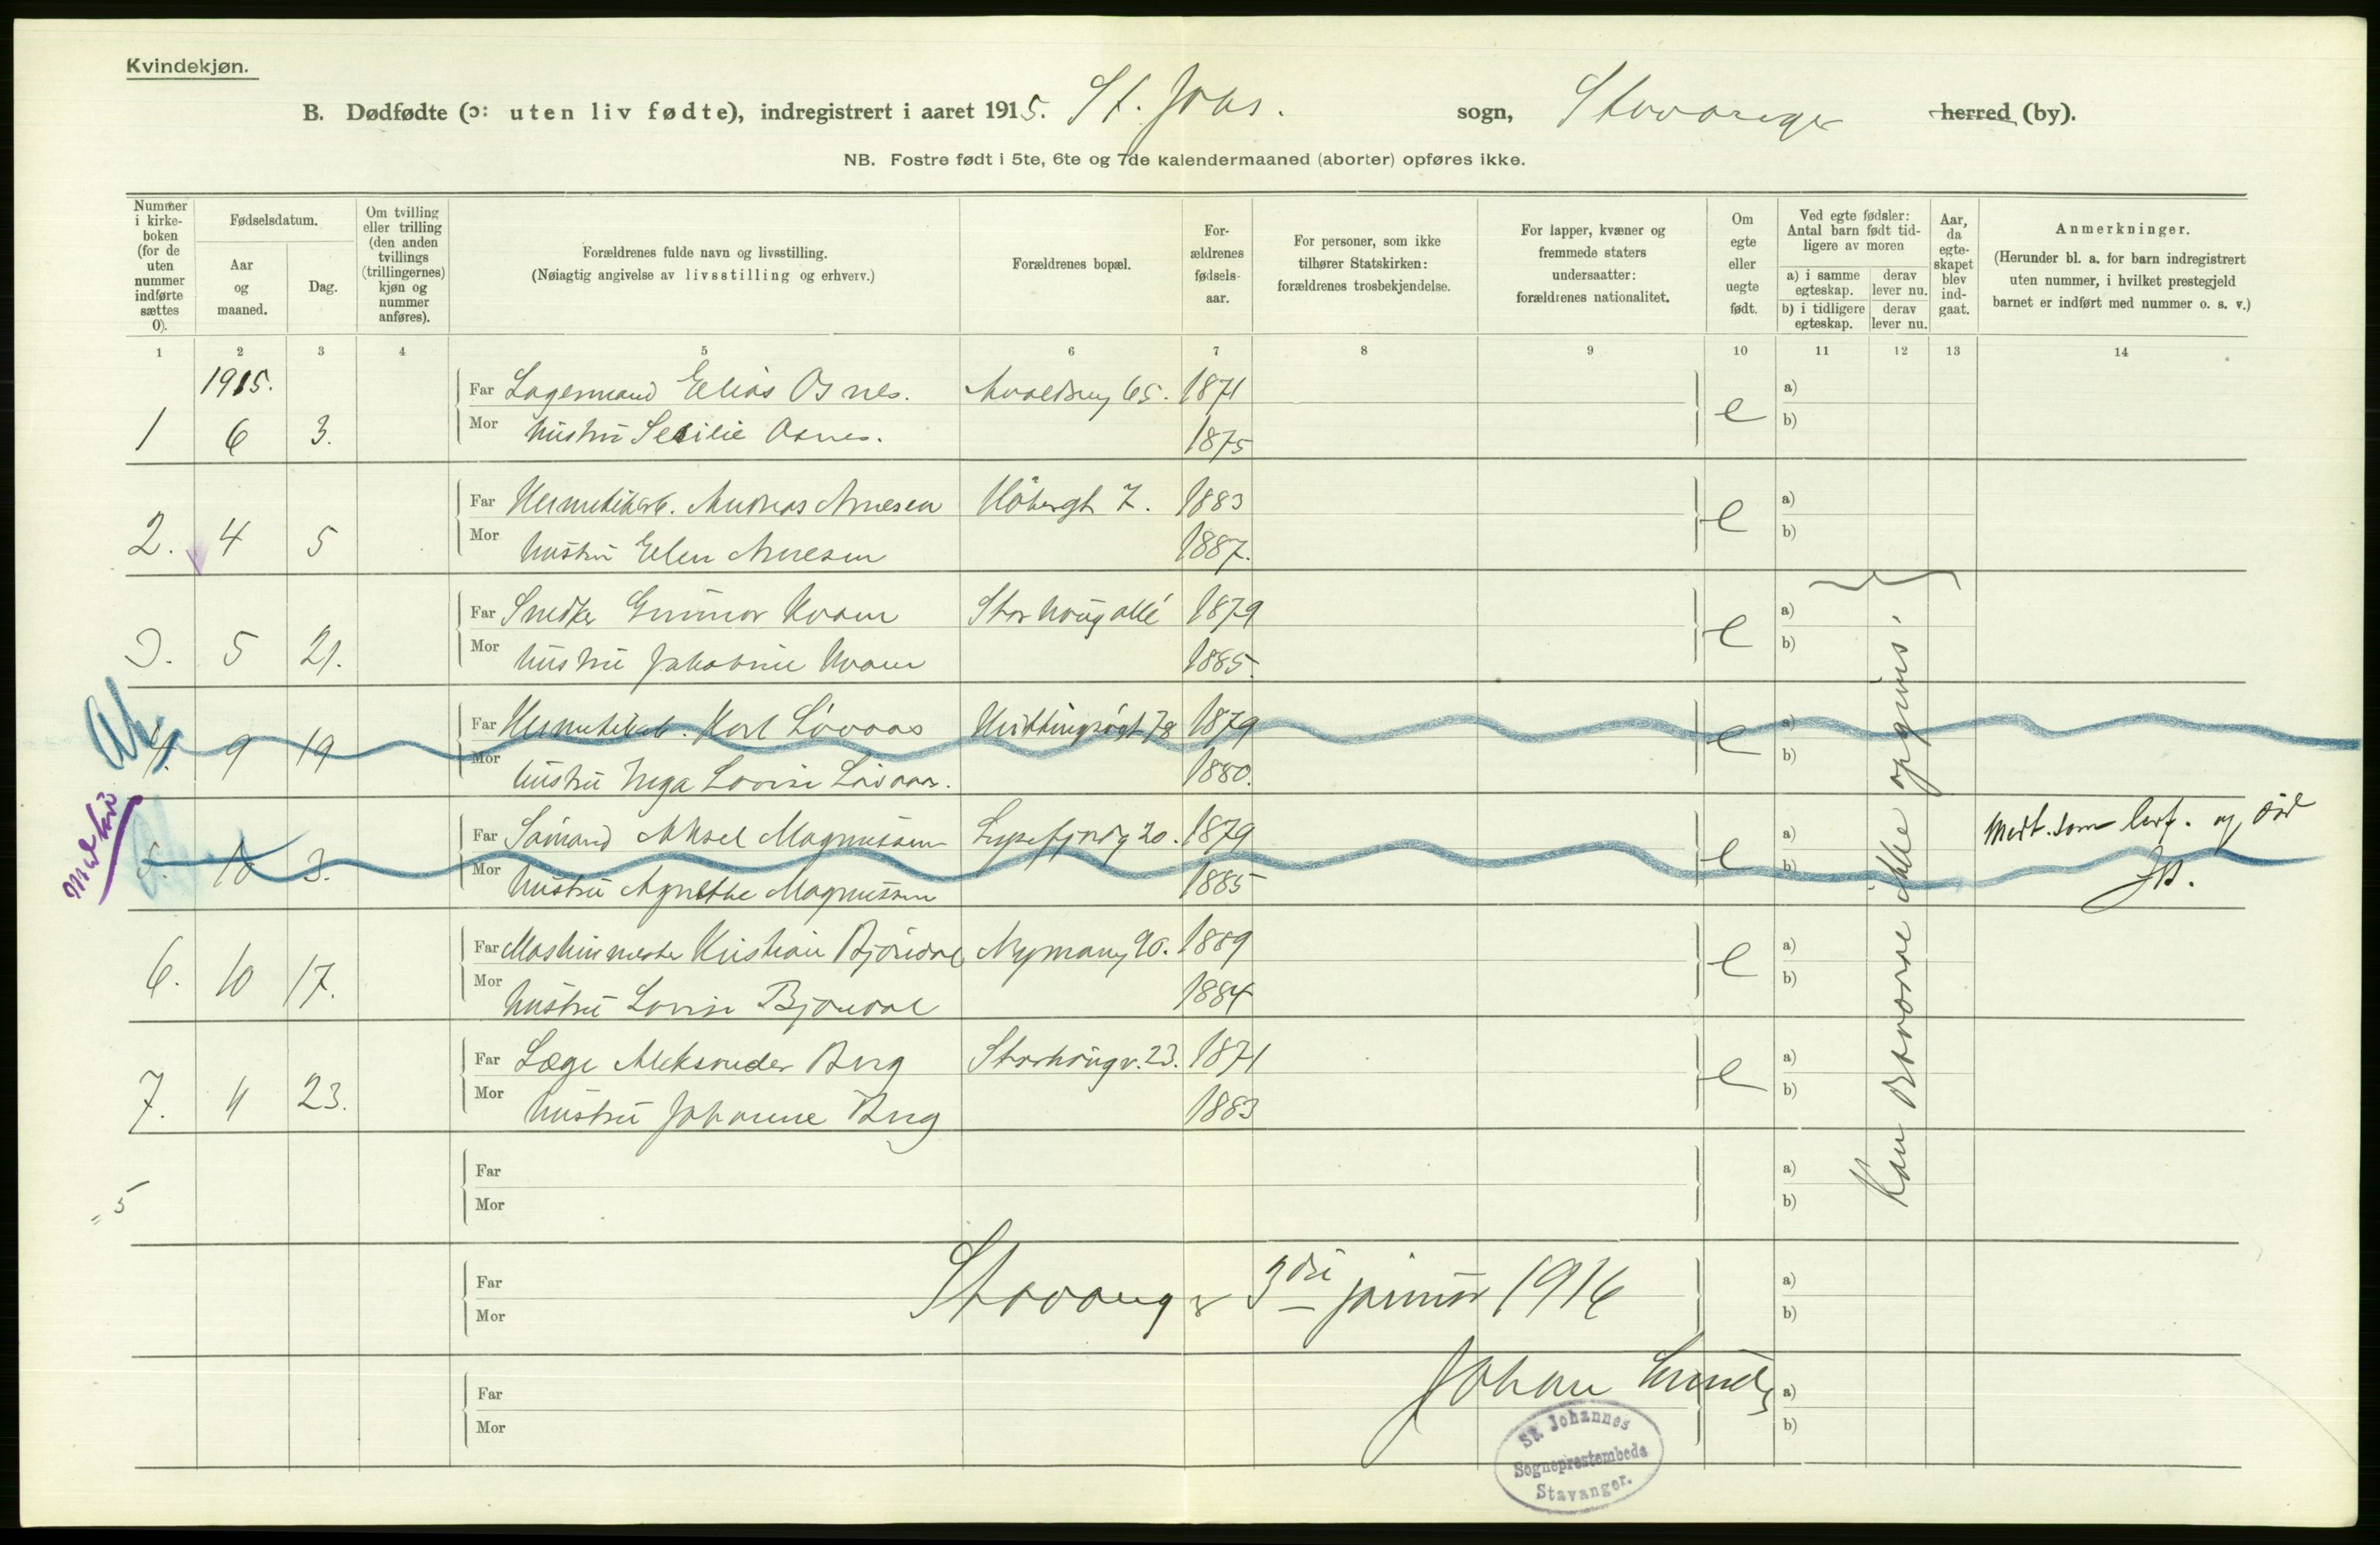 Kvindekjøn.
B. Dødfødte (ɔ: uten liv fødte), indregistrert i aaret 1915. St. Johs. sogn, Stavanger herred (by).
NB. Fostre født i 5te, 6te og 7de kalendermaaned (aborter) opføres ikke.
Nummer i kirke-boken (for de uten nummer indførte sættes 0).
Fødselsdatum.
Aar og maaned.
Dag.
Om tvilling eller trilling (den anden tvillings (trillingernes) kjøn og nummer anføres).
Forældrenes fulde navn og livsstilling.
(Nøiagtig angivelse av livsstilling og erhverv.)
Forældrenes bopæl.
For-ældrenes fødsels-aar.
For personer, som ikke tilhører Statskirken: forældrenes trosbekjendelse.
For lapper, kvæner og fremmede staters undersaatter: forældrenes nationalitet.
Om egte eller uegte født.
Ved egte fødsler: Antal barn født tid-ligere av moren
a) i samme egteskap. derav lever nu.
b) i tidligere egteskap. derav lever nu.
Aar, da egte-skapet blev ind-gaat.
Anmerkninger.
(Herunder bl. a. for barn indregistrert uten nummer, i hvilket prestegjeld barnet er indført med nummer o. s. v.)
1 2 3 4 5 6 7 8 9 10 11 12 13 14
1915.
Far Lagermand Elias Osnes. 65. 1871 a)
1 6 3. Mor hustru Sesilie Osnes. 1875 e b)
Far Hermetikarb. Andreas Arnesen Haabergt 7. 1883 a)
2. 4 5 Mor hustru Elen Arnesen 1887. e b)
Far Snedker Gunnar Kvam Storhougallé 1879 a)
3. 5 21. Mor hustru Jakobine Kvam 1885. e b)
Far Hermetikarb. Karl Lövaas 78 1879 a)
4. 9 19 Mor hustru Inga Lovise Lövaas. 1880. e b)
Far Sömand Aksel Magnussen Lysefjordg 20. 1879 a) Medt. som lev f. og död
5. 10 3. Mor hustru Agnethe Magnussen 1885 e b)
Far Maskinmester Kristian Bjöndal Nymansg 20. 1889 a)
6. 10 17. Mor hustru Lovise Bjöndal 1884 e b)
Far Læge Aleksander Berg Storhougv. 23. 1871 a)
7. 11 23. Mor hustru Johanne Berg 1883 e b)
Kan desværre ikke opgives.
Far a)
= 5 Mor b)
Far a)
Stavanger 3die januar 1916
Mor b)
Johan Lunde
Far a)
Mor b)
St. Johannes
Sogneprestembede
Stavanger.